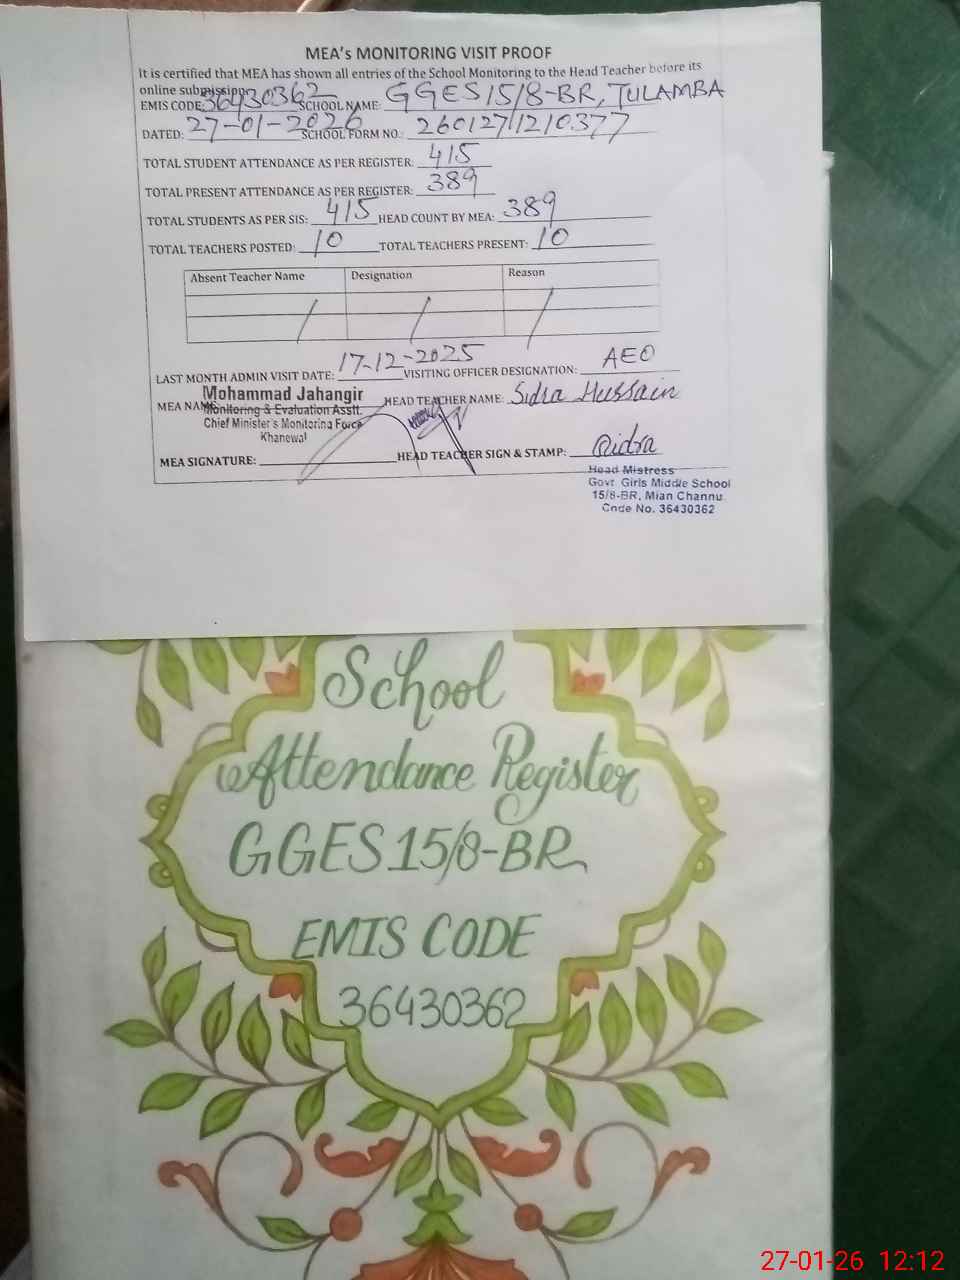 MEA's MONITORING VISIT PROOF
It is certified that MEA has shown all entries of the School Monitoring to the Head Teacher before its
online submission
EMIS CODE: 36430362 SCHOOL NAME: GGES 15/8-BR, TULAMBA
DATED: 27-01-2026 SCHOOL FORM NO.: 2601271210377
TOTAL STUDENT ATTENDANCE AS PER REGISTER: 415
TOTAL PRESENT ATTENDANCE AS PER REGISTER: 389
TOTAL STUDENTS AS PER SIS: 415 HEAD COUNT BY MEA: 389
TOTAL TEACHERS POSTED: 10 TOTAL TEACHERS PRESENT: 10
Absent Teacher Name Designation Reason
/ / /
LAST MONTH ADMIN VISIT DATE: 17-12-2025 VISITING OFFICER DESIGNATION: AEO
MEA NAME: Mohammad Jahangir HEAD TEACHER NAME: Sidra Hussain
Monitoring & Evaluation Asstt.
Chief Minister's Monitoring Force
Khanewal
MEA SIGNATURE: HEAD TEACHER SIGN & STAMP: Sidra
Head Mistress
Govt. Girls Middle School
15/8-BR, Mian Channu.
Code No. 36430362
School
Attendance Register
GGES 15/8-BR
EMIS CODE
36430362
27-01-26 12:12